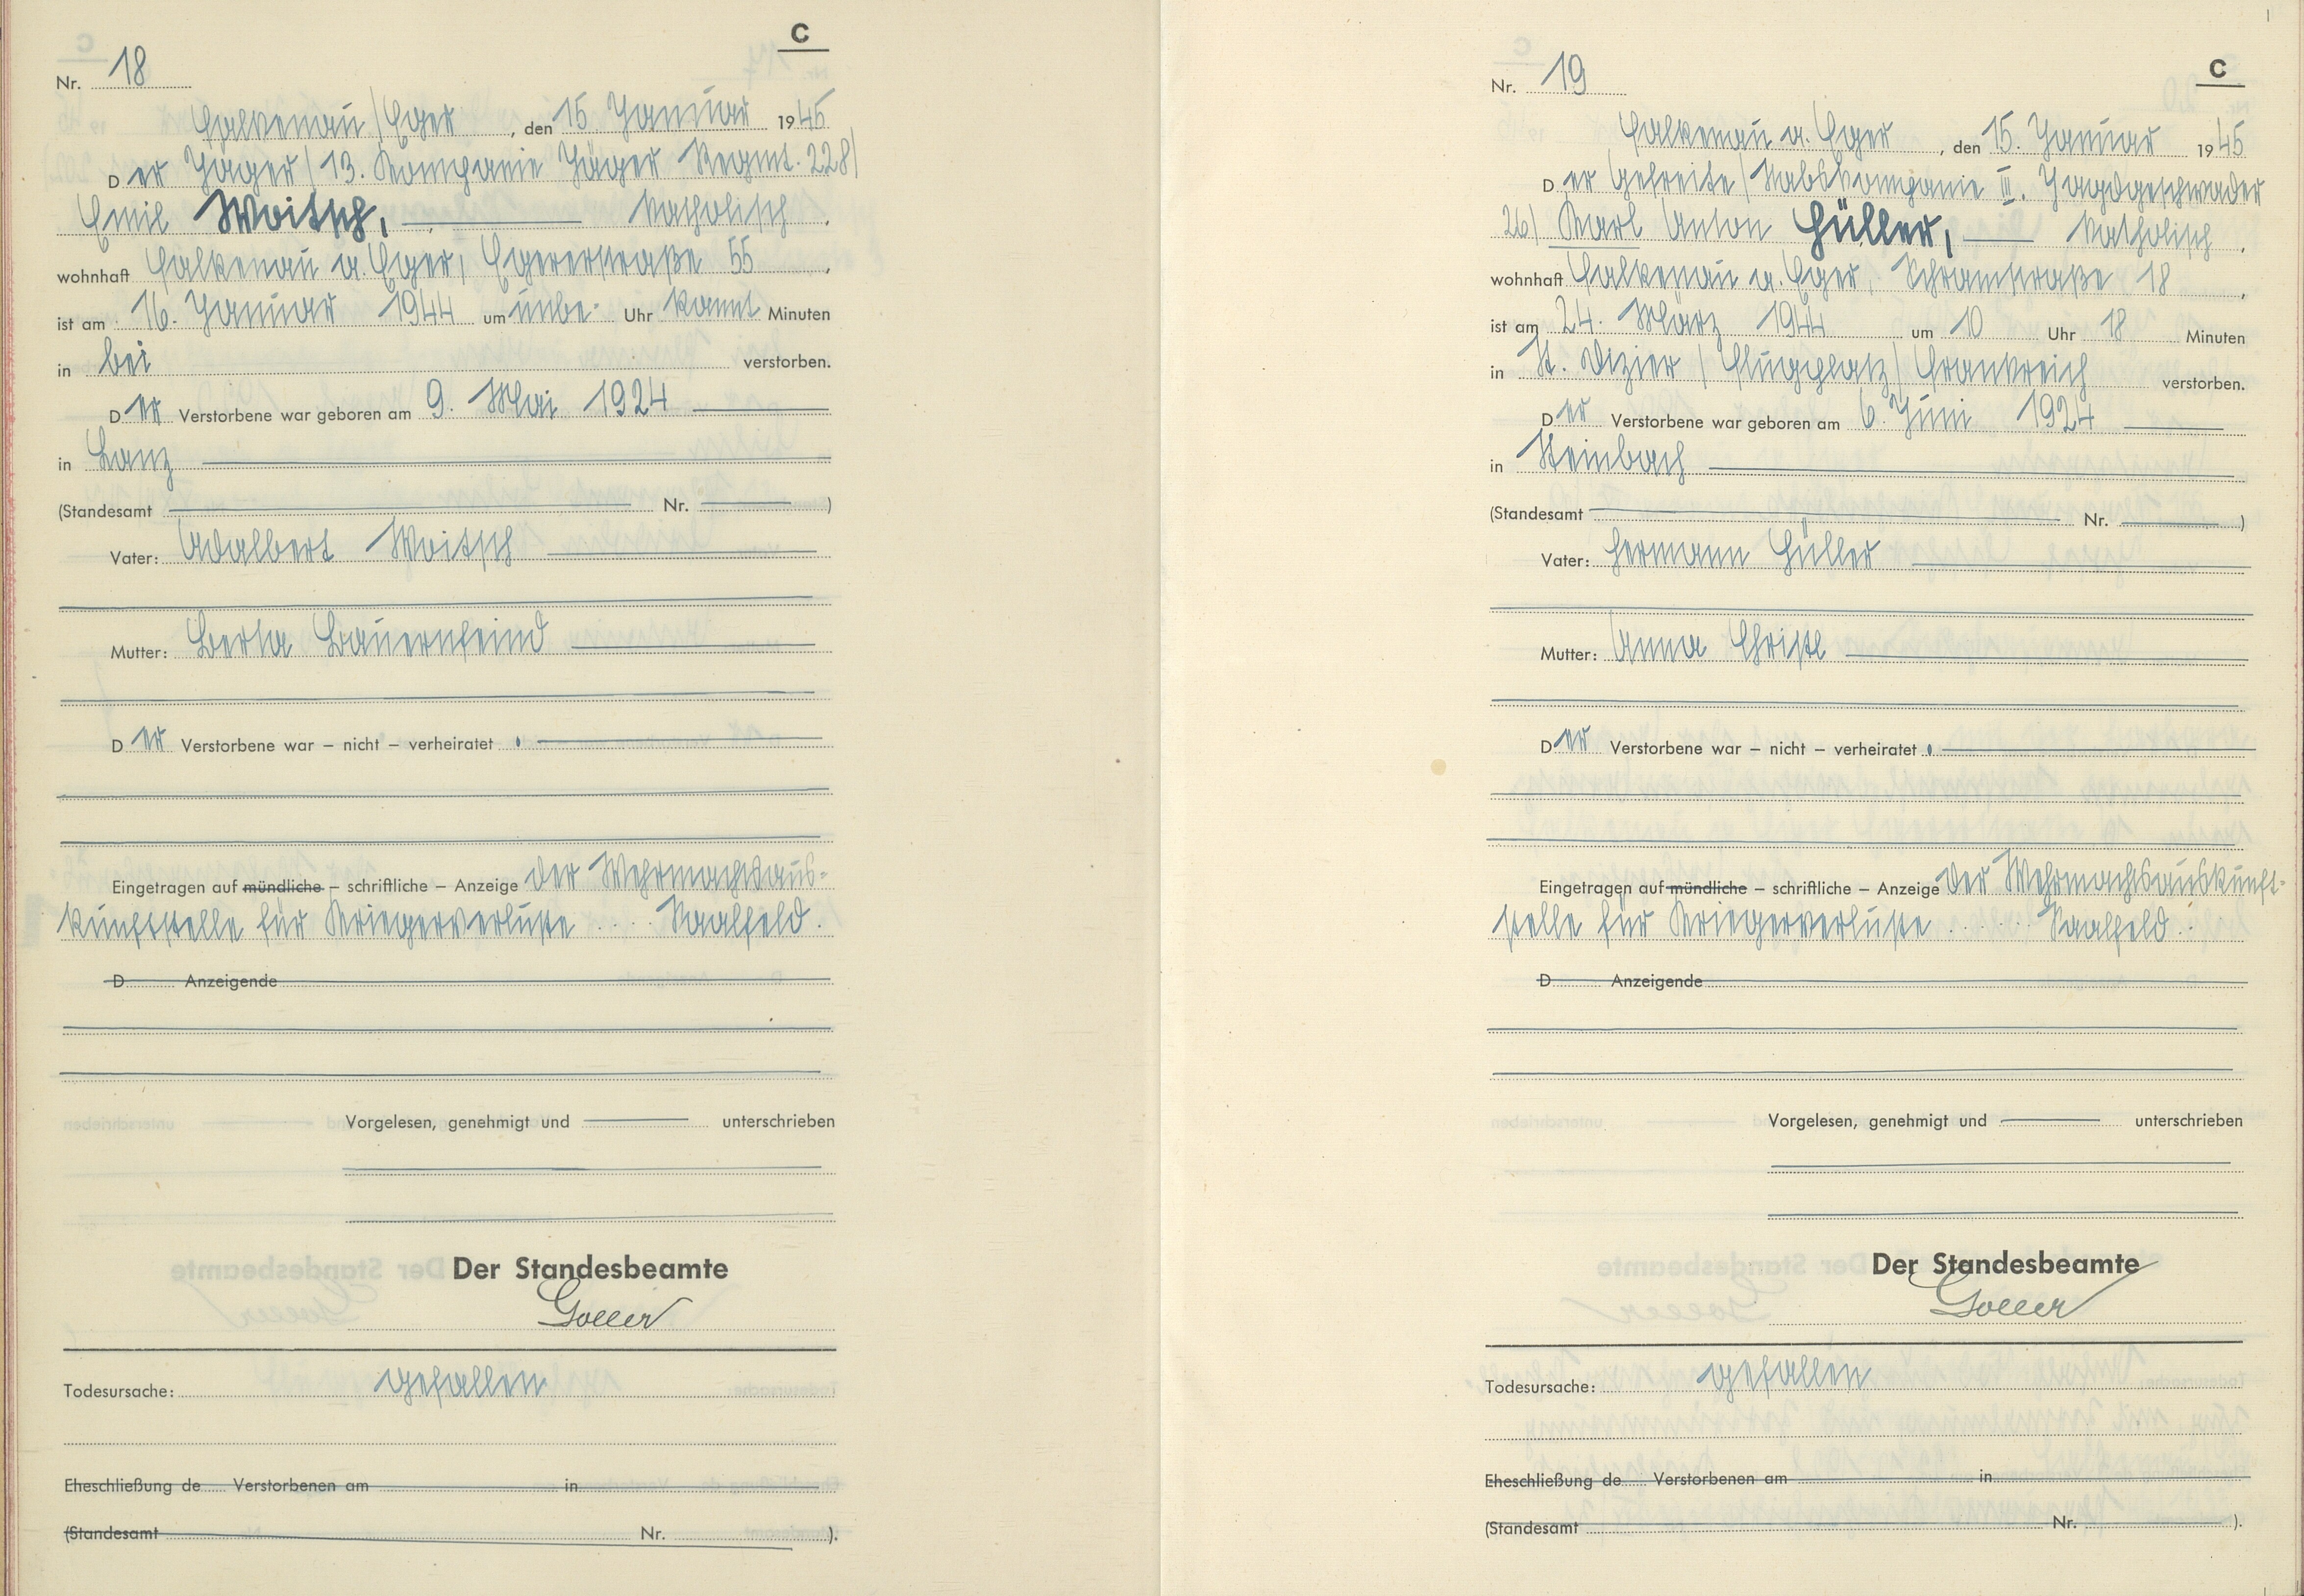 C
Nr. 18
Falkenau/Eger, den 15. Januar 1945
Der Jäger/13. Kompanie Jäger Regmt. 228/
Emil Woitsch, katholisch.
wohnhaft Falkenau a. Eger, Egererstraße 55,
ist am 16. Januar 1944 um unbe- Uhr kannt Minuten
in bei verstorben.
Der Verstorbene war geboren am 9. Mai 1924
in Lanz
(Standesamt Nr. )
Vater: Adalbert Woitsch
Mutter: Berta Bauernfeind
Der Verstorbene war – nicht – verheiratet.
Eingetragen auf mündliche – schriftliche – Anzeige der Wehrmachtsaus-
kunftstelle für Kriegerverluste .... Saalfeld.
D Anzeigende
Vorgelesen, genehmigt und unterschrieben
Der Standesbeamte
Goller
Todesursache: gefallen
Eheschließung de Verstorbenen am in
(Standesamt Nr. ).
C
Nr. 19
Falkenau a. Eger, den 15. Januar 1945
Der Gefreite/Stabskompanie III. Jagdgeschwader
26/ Karl Anton Hüller, katholisch.
wohnhaft Falkenau a. Eger, Schramstraße 18,
ist am 24. März 1944 um 10 Uhr 18 Minuten
in St. Dizier /Flugplatz/ Frankreich verstorben.
Der Verstorbene war geboren am 6. Juni 1924
in Steinbach
(Standesamt Nr. )
Vater: Hermann Hüller
Mutter: Anna Christl
Der Verstorbene war – nicht – verheiratet.
Eingetragen auf mündliche – schriftliche – Anzeige der Wehrmachtsauskunft-
stelle für Kriegerverluste ...... Saalfeld.
D Anzeigende
Vorgelesen, genehmigt und unterschrieben
Der Standesbeamte
Goller
Todesursache: gefallen
Eheschließung de Verstorbenen am in
(Standesamt Nr. ).